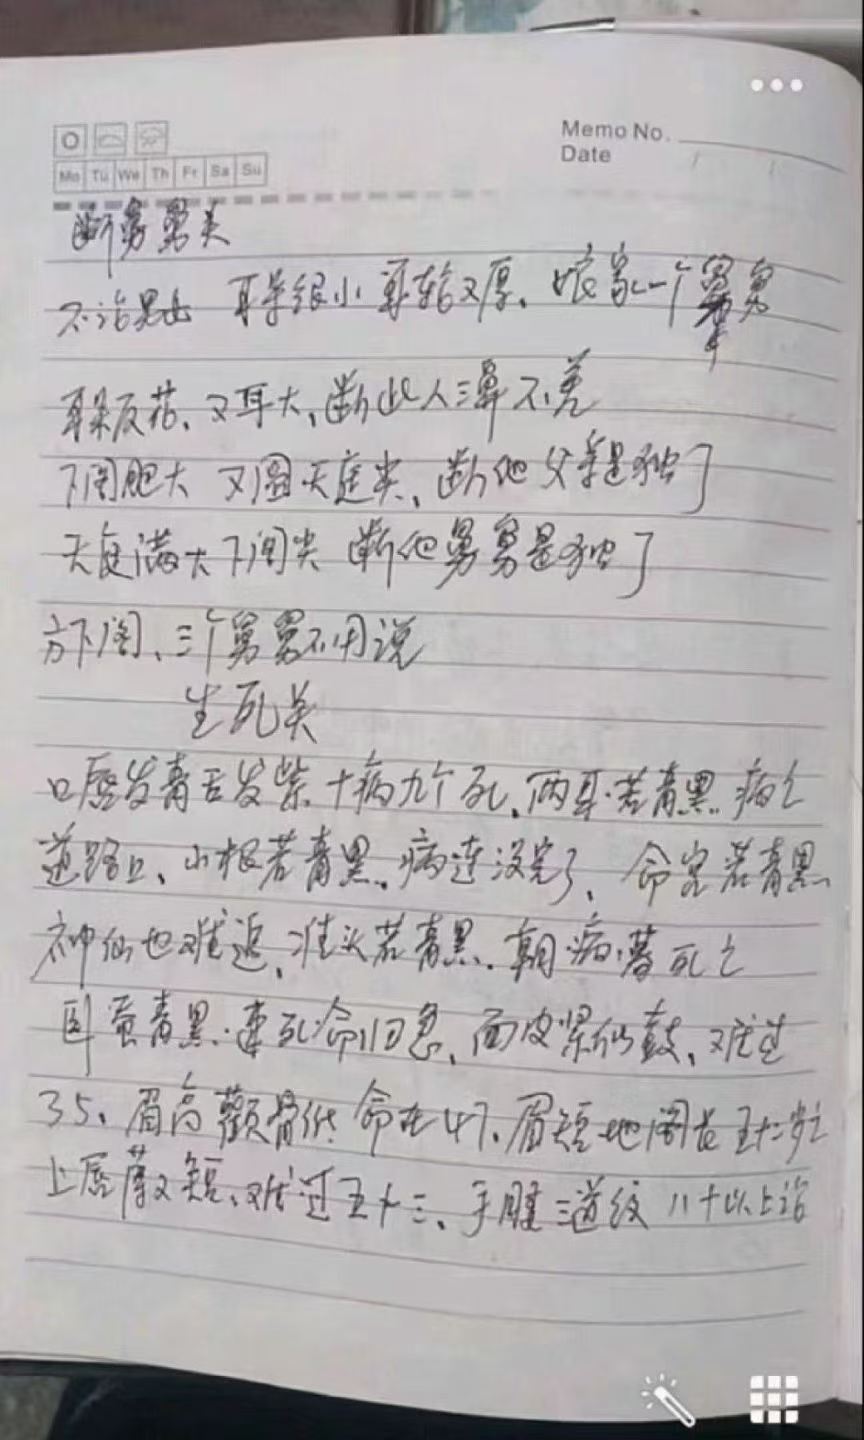 Memo No.
Date
Mo Tu We Th Fr Sa Su
断舅舅关
不论男女 耳朵很小耳轮又厚、娘家一个舅舅
耳朵反花、又耳大、断此人三舅不差
下阁肥大 又圆天庭尖、断他父亲是独丁
天庭满大下阁尖 断他舅舅是独丁
方下阁、三个舅舅不用说
生死关
口唇发青舌发紫、十病九个死、两耳若青黑、病亡
道路上、山根若青黑、病连没完了、命宫若青黑
神仙也难追、准头若青黑、朝病暮死亡
卧蚕青黑、死命归忽、面皮紧似鼓、难过
35、眉高颧骨低 命在47、眉短地阁长 五十二岁亡
上唇薄又短、难过五十三、手腿三道纹 八十以上论